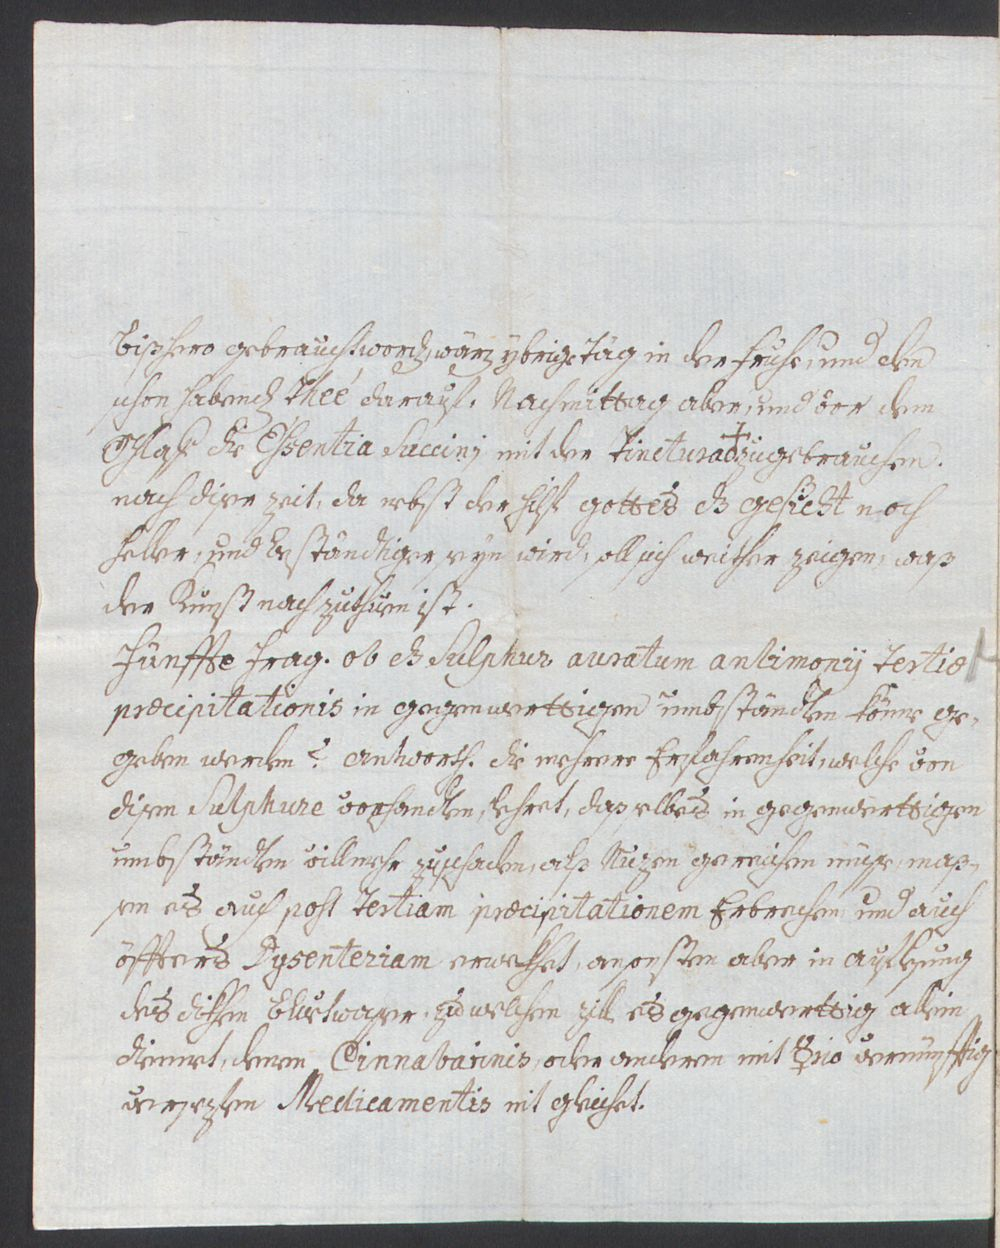 bißhero gebraucht worden, wärn ybrige Täg in der fruhe, und den
schon habend Thee darauf. Nachmittag aber, und vor dem
Schlaff die Essentia Succinj mit der Tinctura zugebrauchen.
nach diser zeit, da nebst der hilf gottes dz gesicht noch
heller, und beständtiger seyn wird, soll sich weither zeigen, waß
der Kunst nach zuthuen ist.
Fünffte frag. ob dz Sulphur auratum antimonij tertiæ
præcipitationis in gegenwerttigen umbständten könne ge-
geben werden? antworth. die mehrere Erfahrenheit, welche von
disem Sulphure vorhandten, lehret, daß selbes in gegenwerttigen
umbständten villmehr zuschaden, alß Nuzen gereichen müsse, maß-
sen es auch post tertiam præcipitationem Erbrechen und auch
öffters Dysenteriam erwekhet, ansonsten aber in auflösung
des dikhen bluetwasser, zu welchem zill es gegenwerttig allein
dienet, denen Cinnabarinis, oder anderen mit ☿rio vernünfftig
versezten Medicamentis nit gleichet.